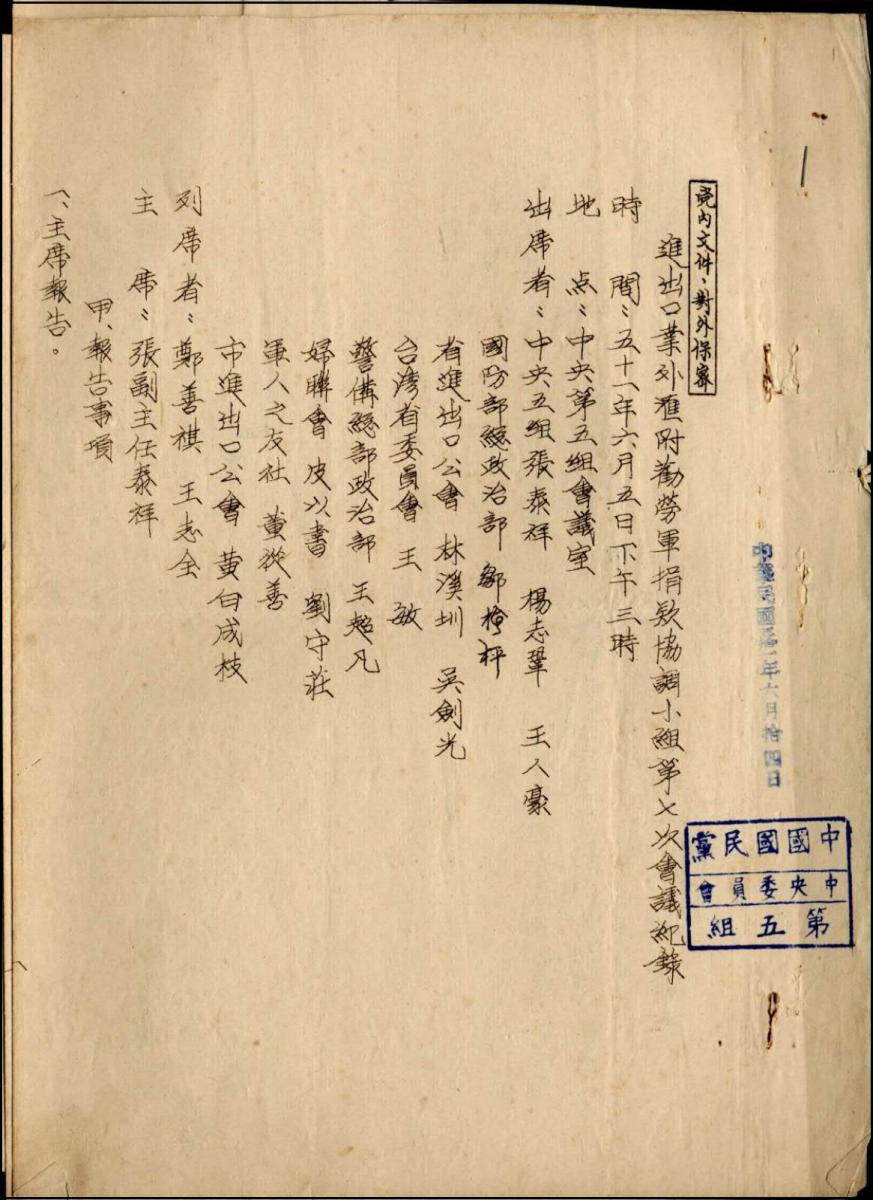 中華民國五十一年六月拾四日
中國國民黨
中央委員會
第五組
党內文件、對外保密
進出口業外滙附勸勞軍捐欵協調小組第七次會議紀錄
時 間:五十一年六月五日下午三時
地 点:中央第五組會議室
出席者:中央五組張泰祥 楊志鞏 王人豪
國防部總政治部 鄒
省進出口公會 林溪圳 吳劍光
台湾省委員會 王敏
警備總部政治部 王超凡
婦聯會 皮以書 劉守莊
軍人之友社 黃從善
市進出口公會 黃白成枝
列席者:鄭善祺 王志全
主 席:張副主任泰祥
甲、報告事項
一、主席報告。